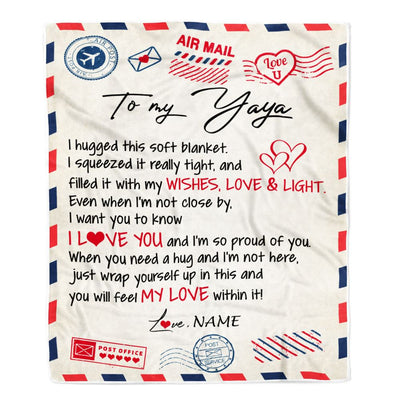 AIR POST
AIR MAIL
Love
U
To my Yaya
I hugged this soft blanket.
I squeezed it really tight, and
filled it with my WISHES, LOVE & LIGHT.
Even when I'm not close by,
I want you to know
I L❤VE YOU and I'm so proud of you.
When you need a hug and I'm not here,
just wrap yourself up in this and
you will feel MY LOVE within it!
Love, NAME
POST OFFICE
POST
SERVICE